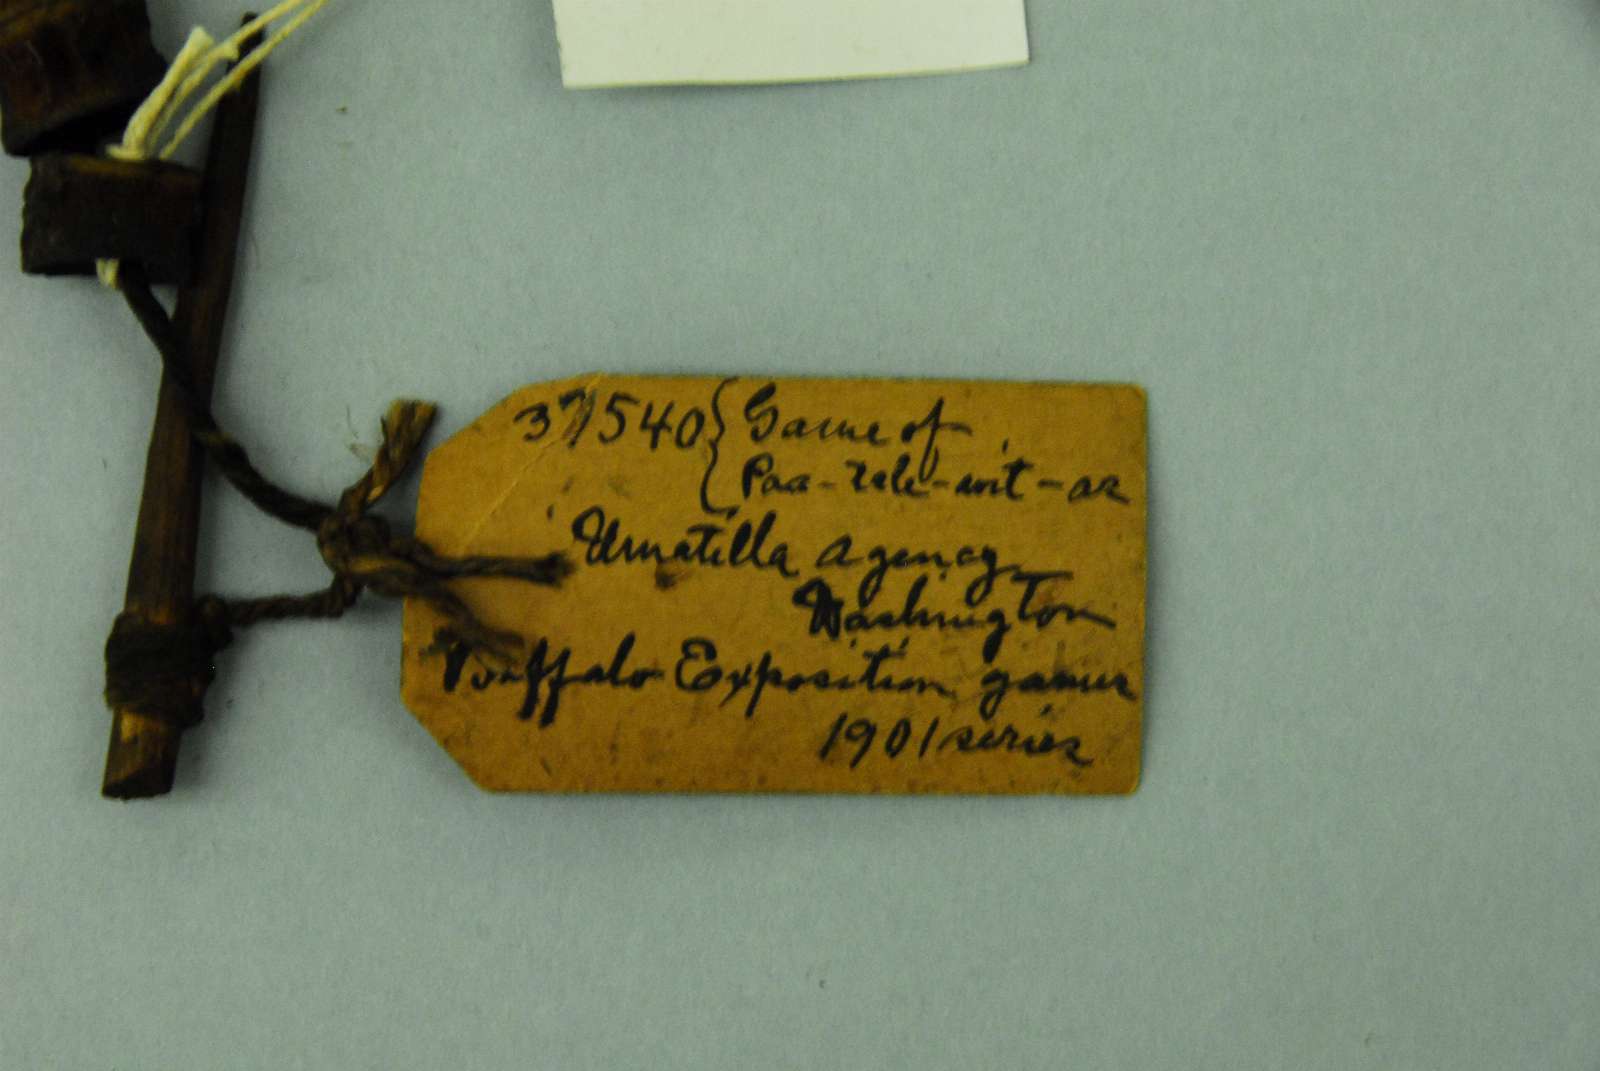 37540 { Game of
Paa-tele-wit-az
Umatilla Agency
Washington
Buffalo Exposition games
1901 series